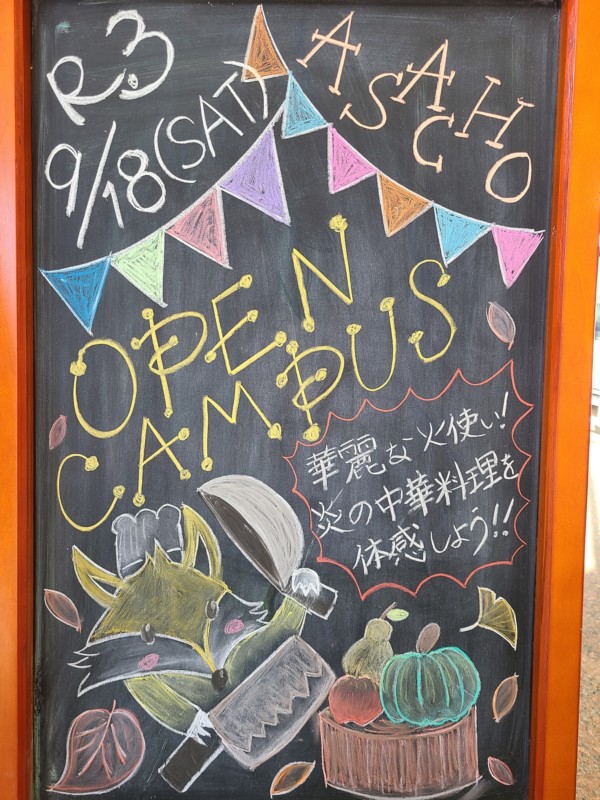 R.3
9/18(SAT)
ASAHO
SCO
OPEN
CAMPUS
華麗な火使い!
炎の中華料理を
体感しよう!!